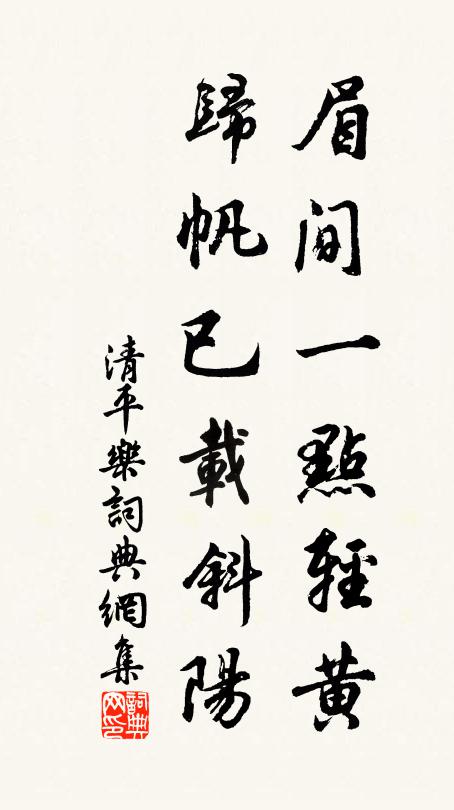 眉間一點輕黄
歸帆已載斜陽
清平樂詞典網集
詞典网印